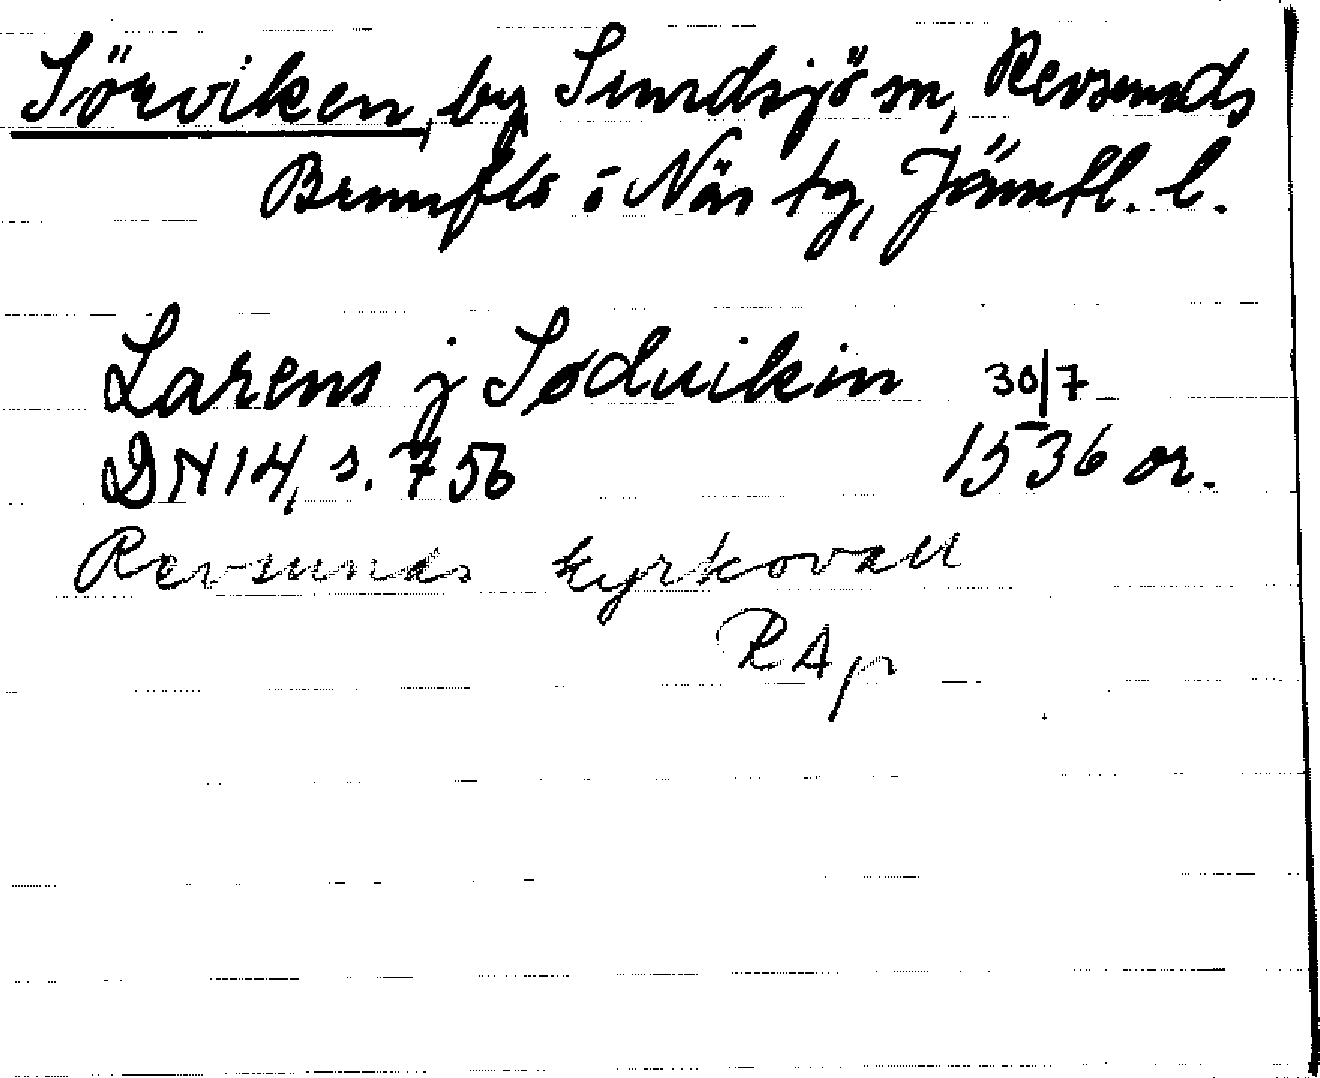 Sörviken, by Sundsjö sn, Revsunds
Brunflo o Näs tg, Jämtl. l.
Larens j Sødvikin 30/7
DN 14, s. 756 1536 or.
Revsunds kyrkovall
RAp